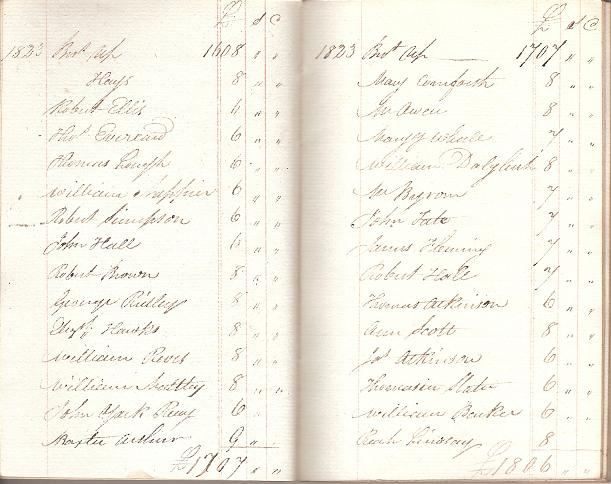 £ s d
1823 Brot Up 1608 " "
Hays 8 " "
Robert Ellis 6 " "
Thos Everard 6 " "
Thomas Gough 6 " "
William 6 " "
Robert Simpson 6 " "
John Hall 6 " "
Robert Brown 8 " "
George Ridley 8 " "
Hawks 8 " "
William Reves 8 " "
William 8 " "
John York 6 " "
9 "
£1707 " "
£ s d
1823 Brot Up 1707 " "
Mary Cornforth 8 " "
Owen 8 " "
Mary 7 " "
William 8 " "
Byrom 7 " "
John Tate 7 " "
James Fleming 7 " "
Robert Hall 7 " "
Thomas Atkinson 6 " "
Ann Scott 8 " "
Jos Atkinson 6 " "
Thomasin Slater 6 " "
William Barker 6 " "
Lindsay 8
£1806 " "